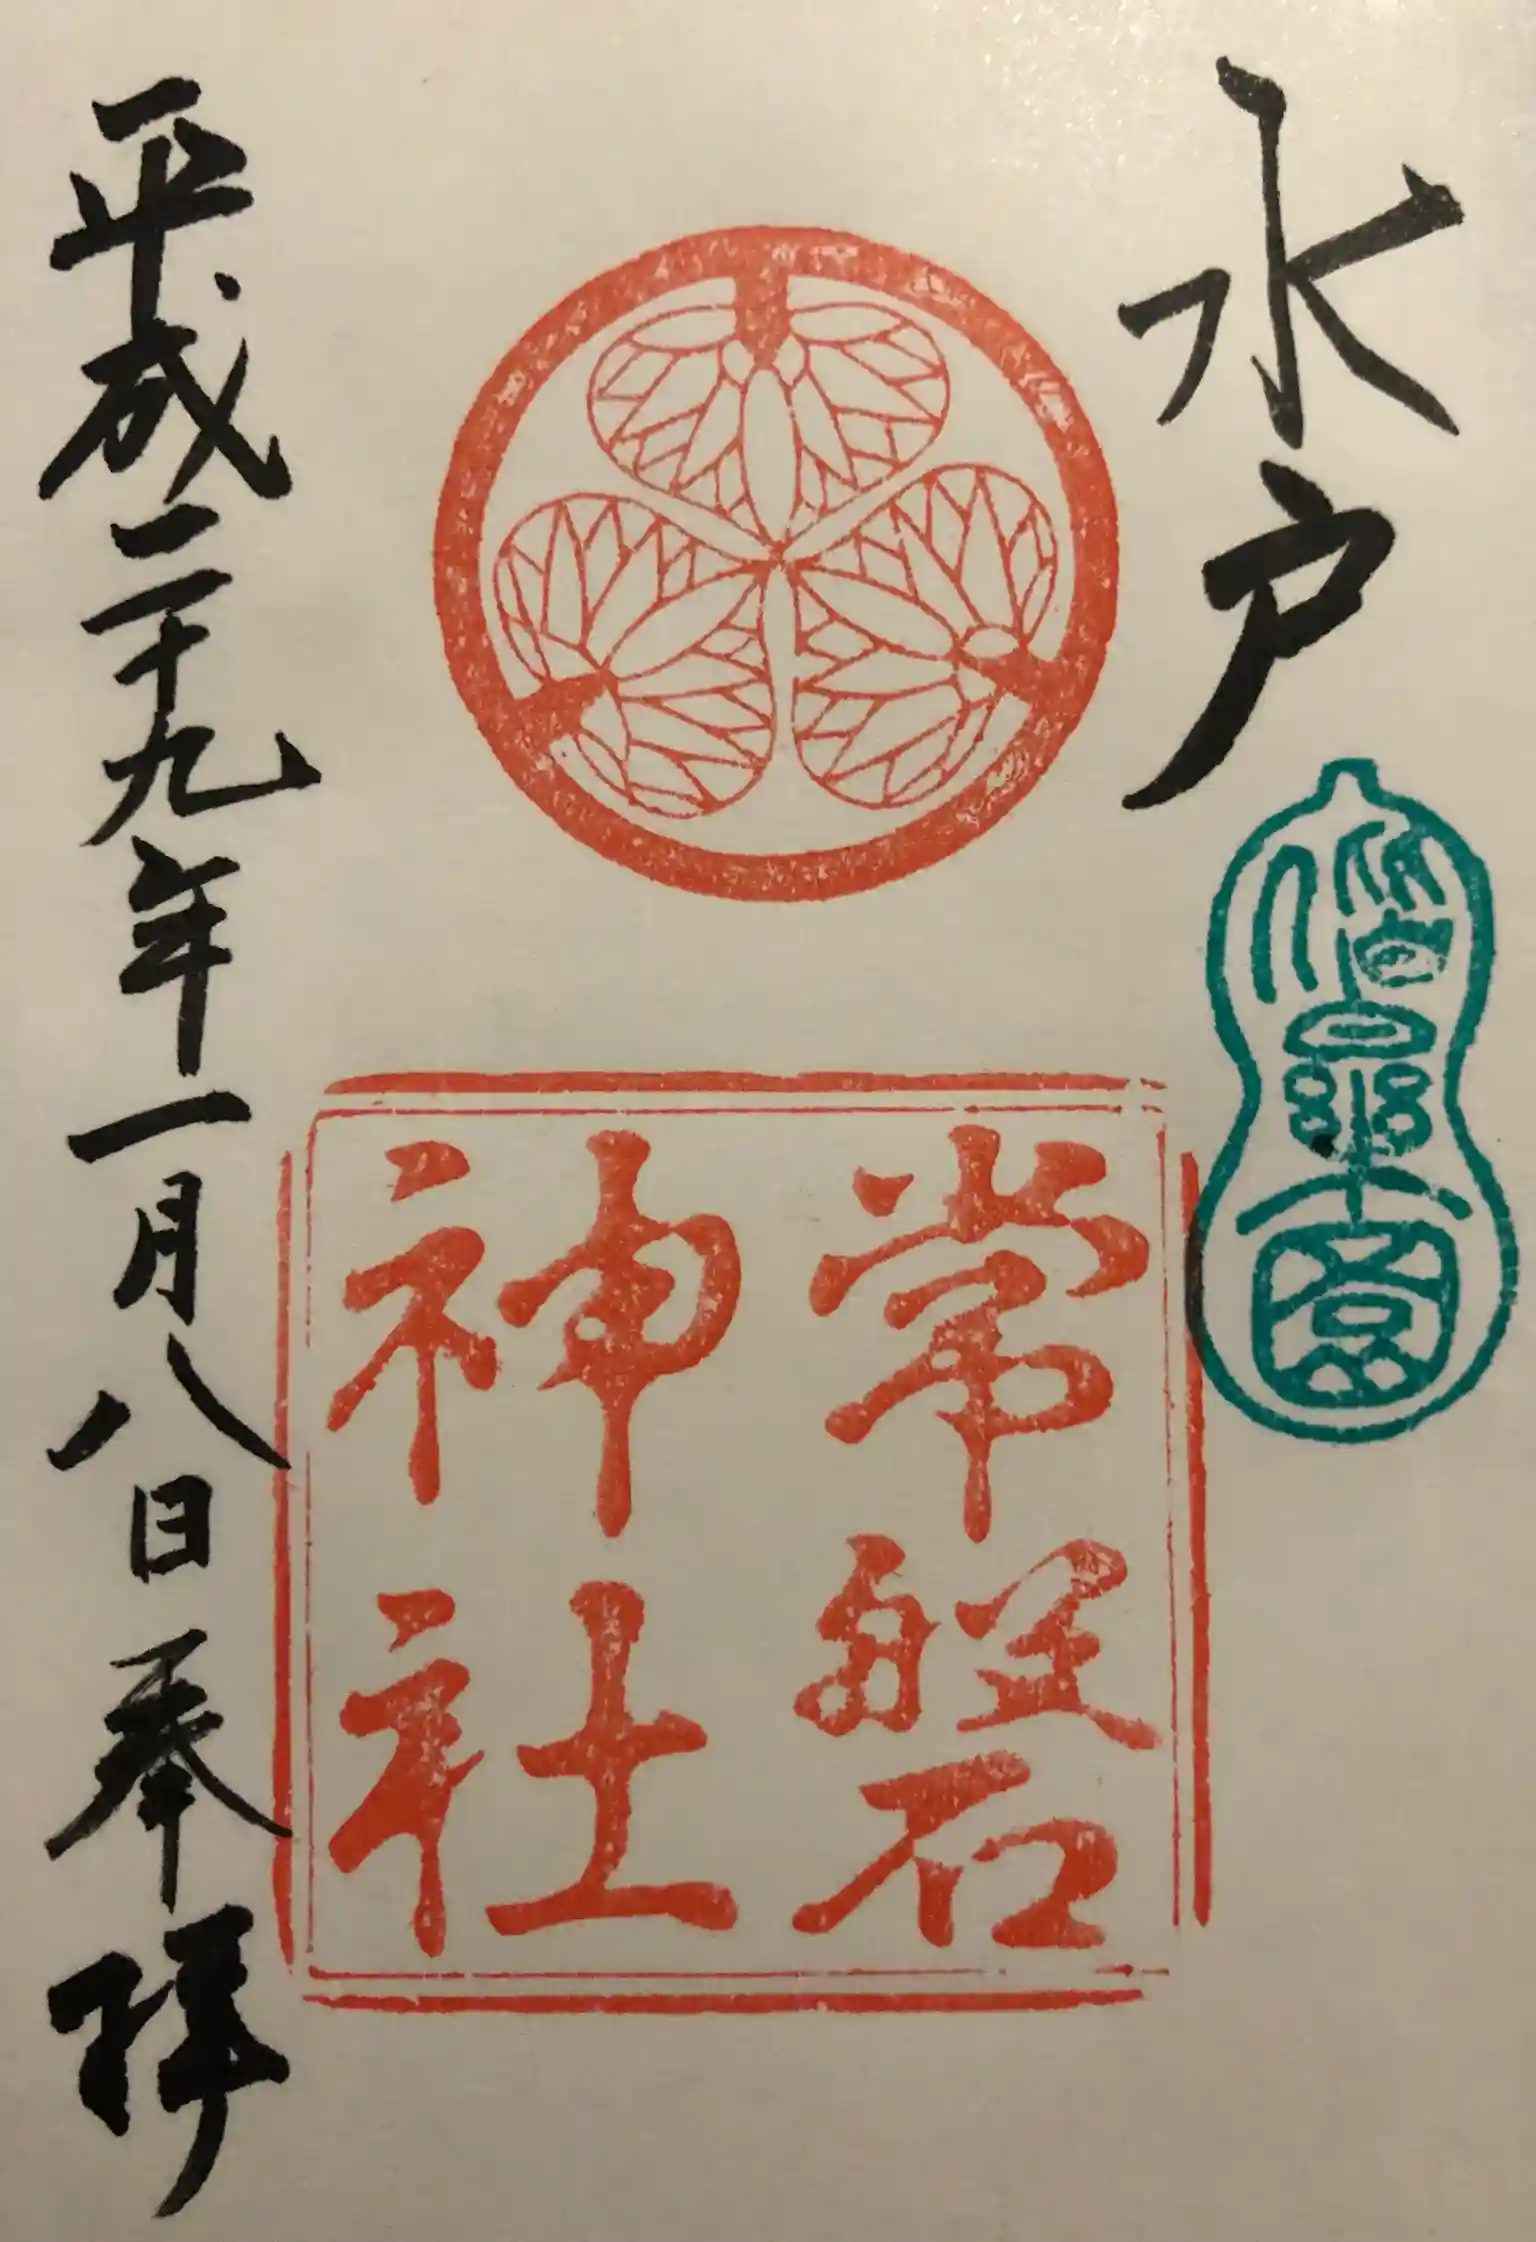 水戸
偕楽園
常磐
神社
平成二十九年一月八日奉拝